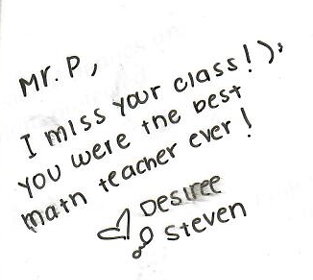 Mr. P,
I miss your class! ):
You were the best
math teacher ever!
Desiree
& Steven